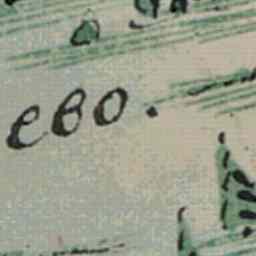 ево.